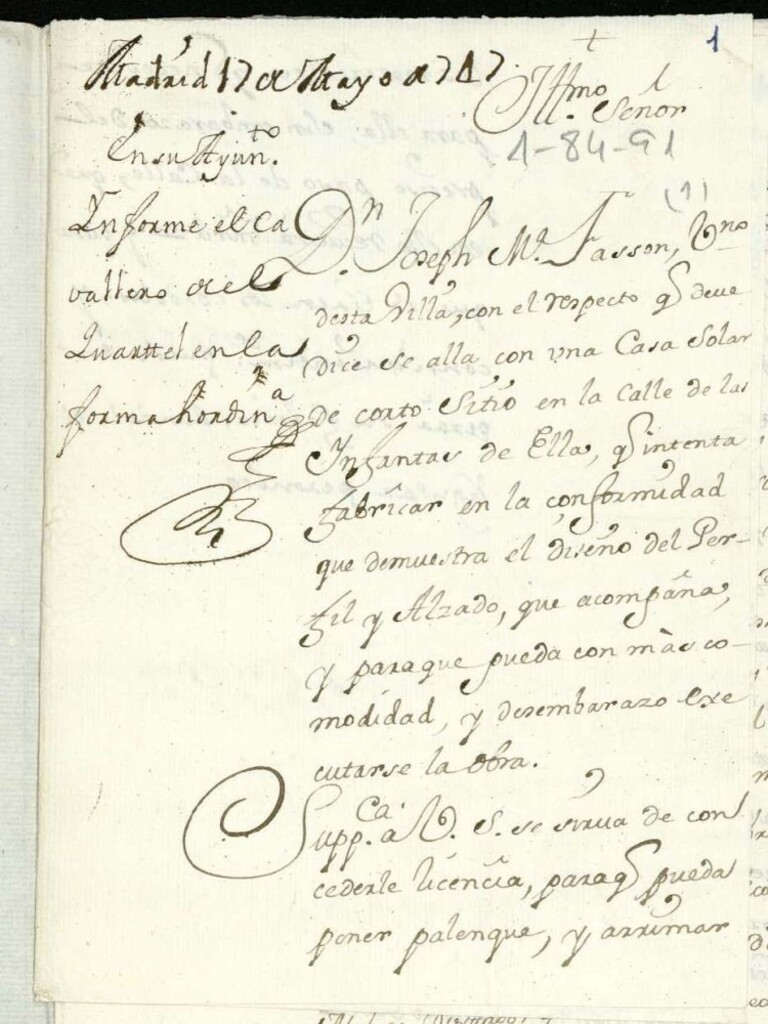 1
Madrid 17 de Mayo de 1747
En su Ayun.to
Informe el Ca
vallero de el
Quarttel en la
forma hordin.a
Yll.mo Señor
1-84-91
(1)
D.n Joseph M.l Fasson, Vno
desta Villa, con el respecto q̃ deve
dice se alla con vna Casa Solar
de corto Sitio en la Calle de las
Infantas de Ella, q̃ intenta
fabricar en la conformidad
que demuestra el diseño del Per-
fil y Alzado, que acompaña,
y para que pueda con mas co-
modidad, y desembarazo exe
cutarse la obra.
Supp.ca a V. S. se sirva de con
cederle licencia, para q̃ pueda
poner palenque, y arrimar